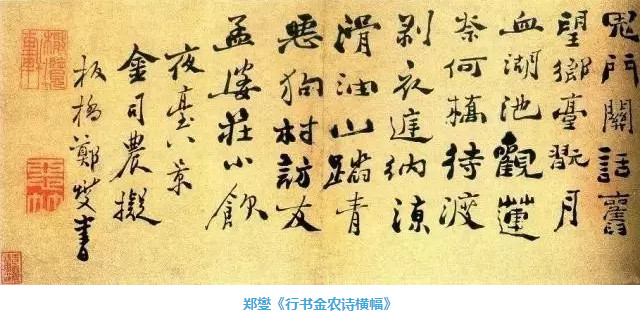 鬼門關話舊
望鄉臺翫月
血湖池觀蓮
奈何橋待渡
剝衣庭納涼
滑油山踏青
惡狗村訪友
孟婆莊小飲
夜臺八景
金司農擬
板橋鄭燮書
郑燮《行书金农诗横幅》